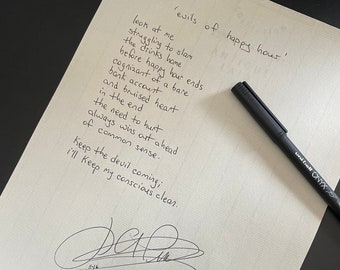 'evils of happy hour'
look at me
struggling to slam
the drinks home
before happy hour ends
cognizant of a bare
bank account
and bruised heart
in the end
the need to hurt
always wins out ahead
of common sense.
keep the devil coming;
i'll keep my conscious clean.
uni-ball ONYX